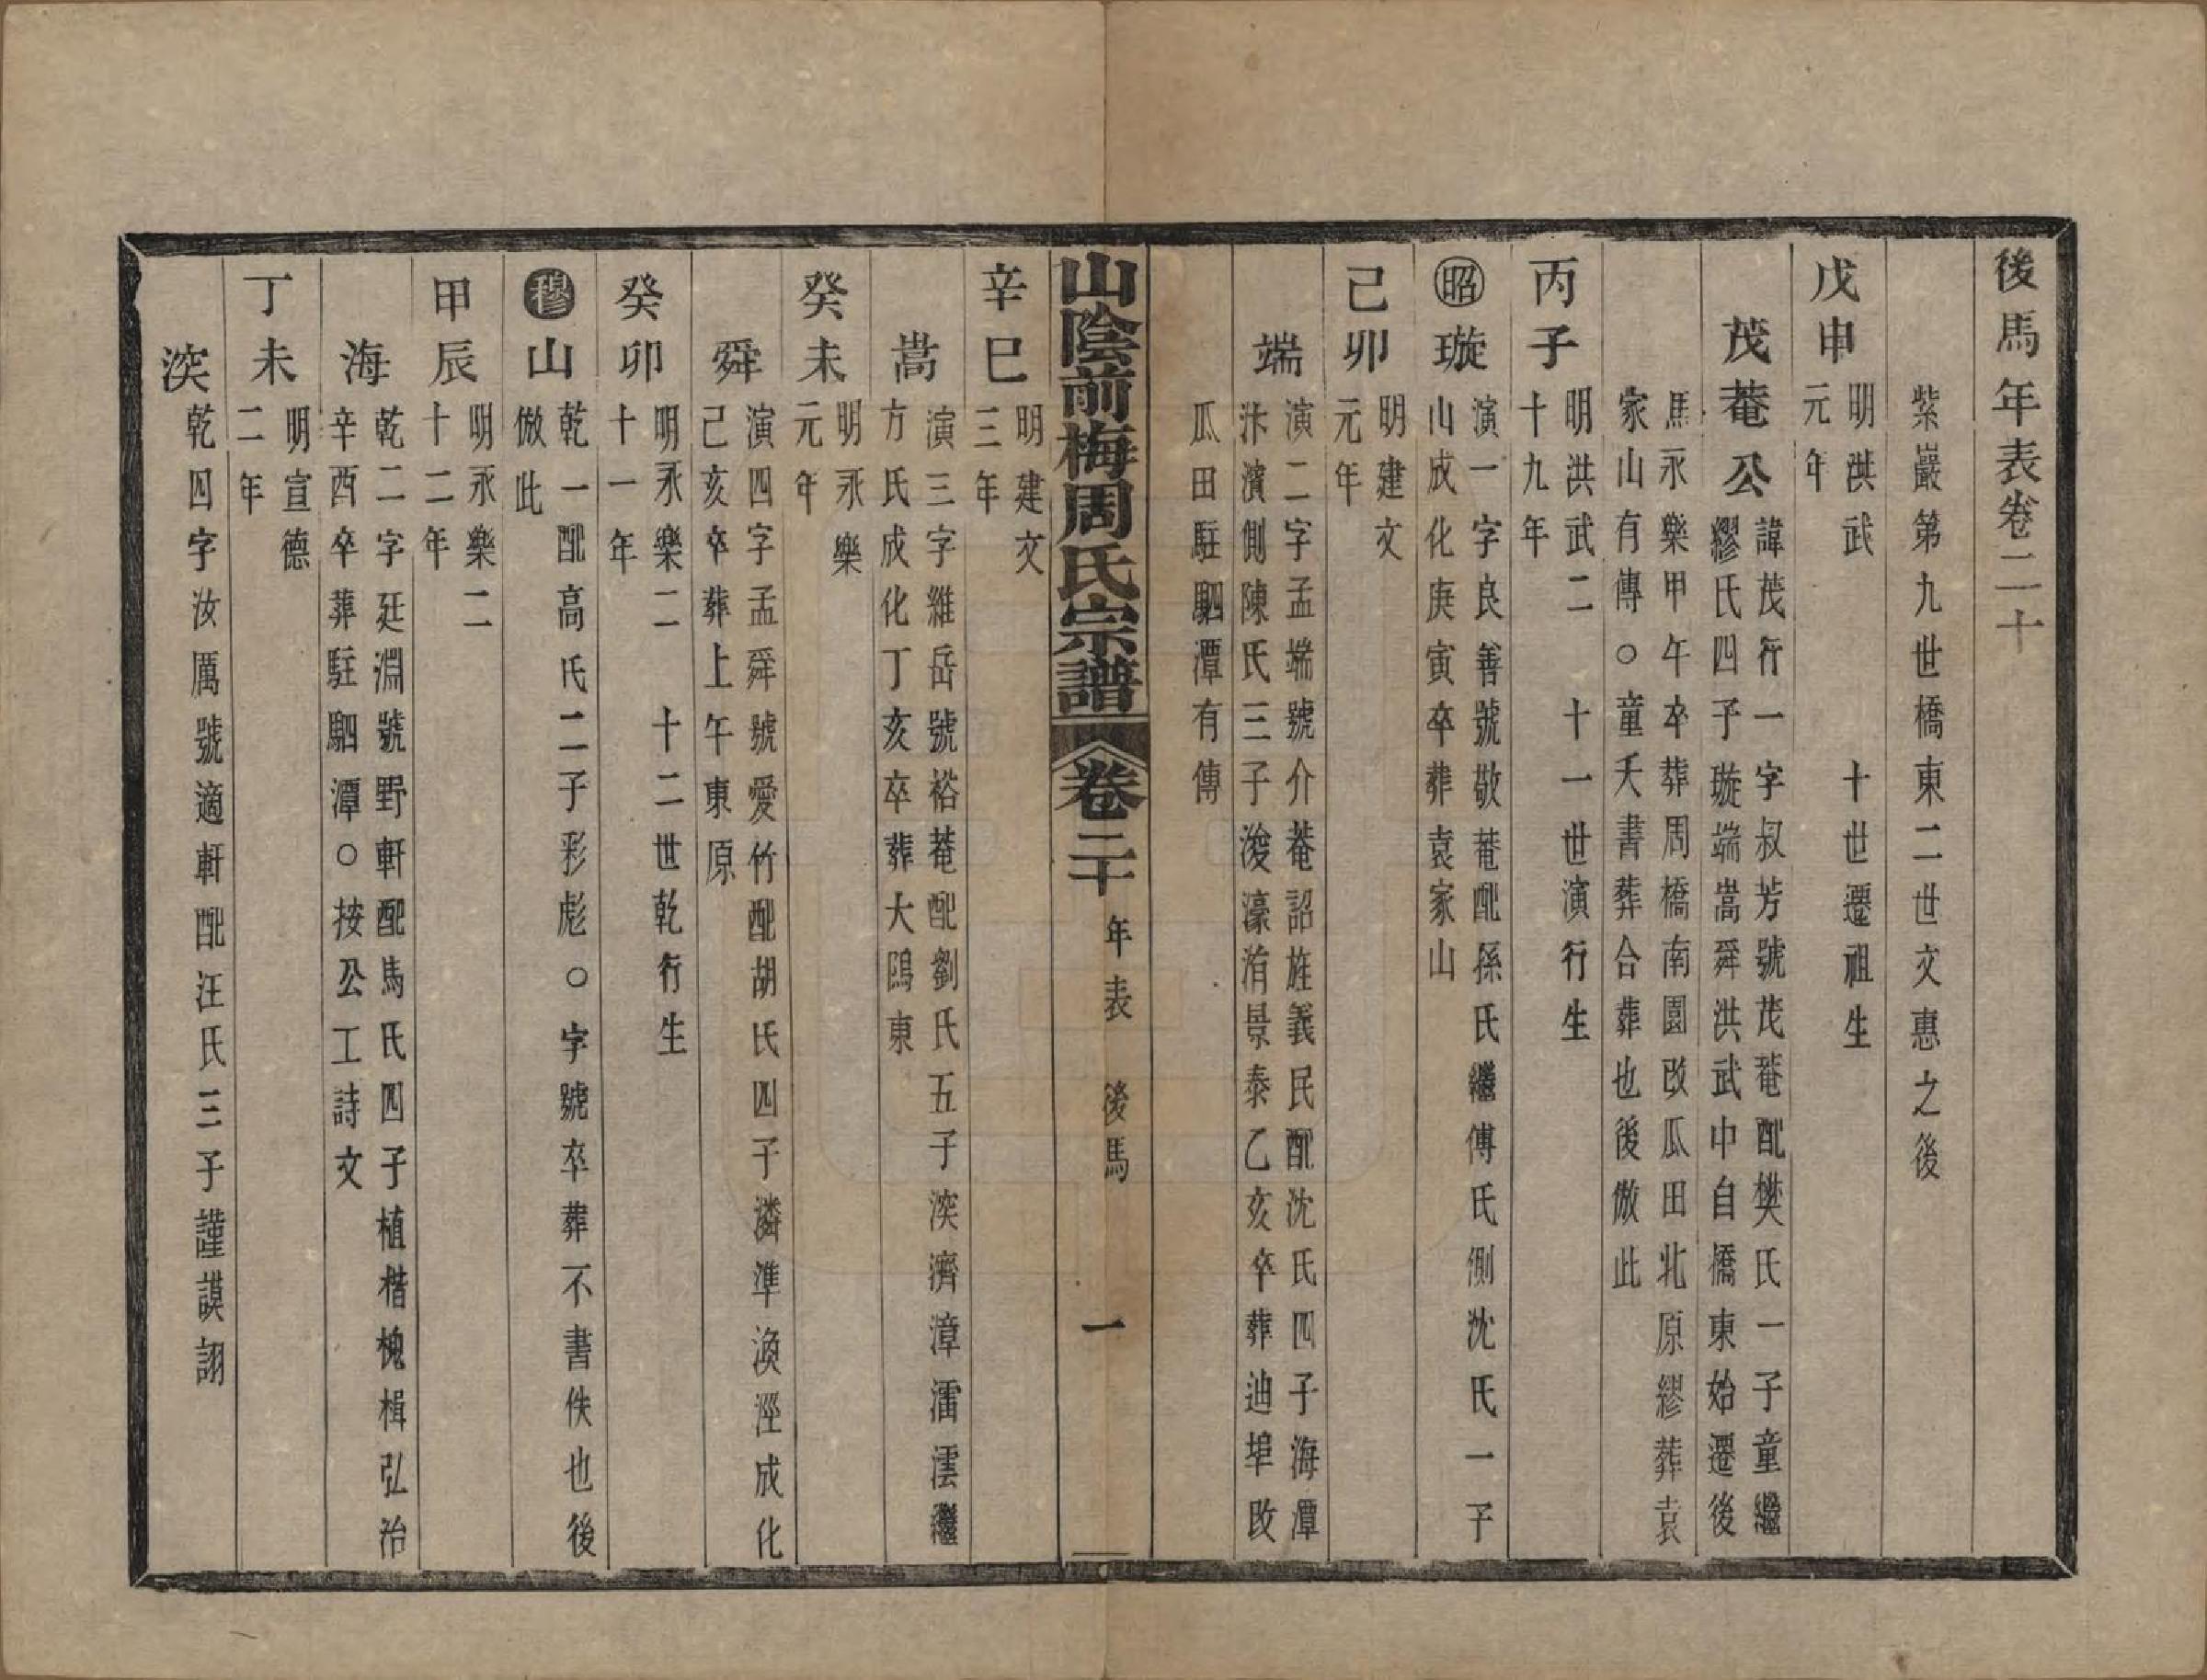 後馬年表卷二十
紫巖第九世橋東二世文惠之後
戊申
明洪武　十世遷祖生
元年
茂菴公
諱茂行一字叔芳號茂菴配樊氏一子童繼
繆氏四子璇端嵩舜洪武中自橋東始遷後
馬永樂甲午卒葬周橋南園改瓜田北原繆葬袁
家山有傳○童夭書葬合葬也後倣此
丙子
明洪武二　十一世演行生
十九年
昭璇
演一字良善號敬菴配孫氏繼傅氏側沈氏一子
山成化庚寅卒葬袁家山
己卯
明建文
元年
端
演二字孟端號介菴詔旌義民配沈氏四子海潭
汴濱側陳氏三子浚濠淯景泰乙亥卒葬迪埠改
瓜田駐駟潭有傳
山陰前梅周氏宗譜　卷二十　年表　後馬　一
辛巳
明建文
三年
嵩
演三字維岳號裕菴配劉氏五子湥濟漳澑澐繼
方氏成化丁亥卒葬大鴎東
癸未
明永樂
元年
舜
演四字孟舜號愛竹配胡氏四子潾準渙涇成化
己亥卒葬上午東原
癸卯
明永樂二　十二世乾行生
十一年
穆山
乾一配高氏二子彩彪○字號卒葬不書佚也後
倣此
甲辰
明永樂二
十二年
海
乾二字廷淵號野軒配馬氏四子植楷槐楫弘治
辛酉卒葬駐駟潭○按公工詩文
丁未
明宣德
二年
湥
乾四字汝厲號適軒配汪氏三子謹謨詡